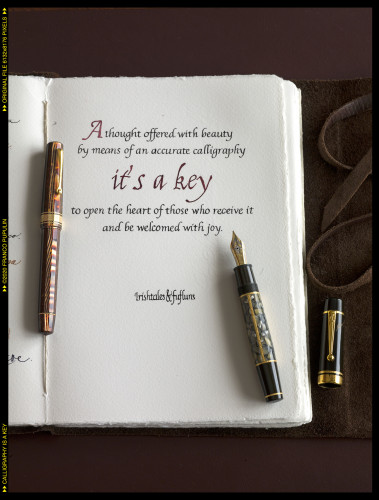 A thought offered with beauty
by means of an accurate calligraphy
it's a key
to open the heart of those who receive it
and be welcomed with joy.
Irishtales&fufluns
ORIGINAL FILE 6132x8176 PIXELS
©2020 FRANCO PUPULIN
CALLIGRAPHY IS A KEY